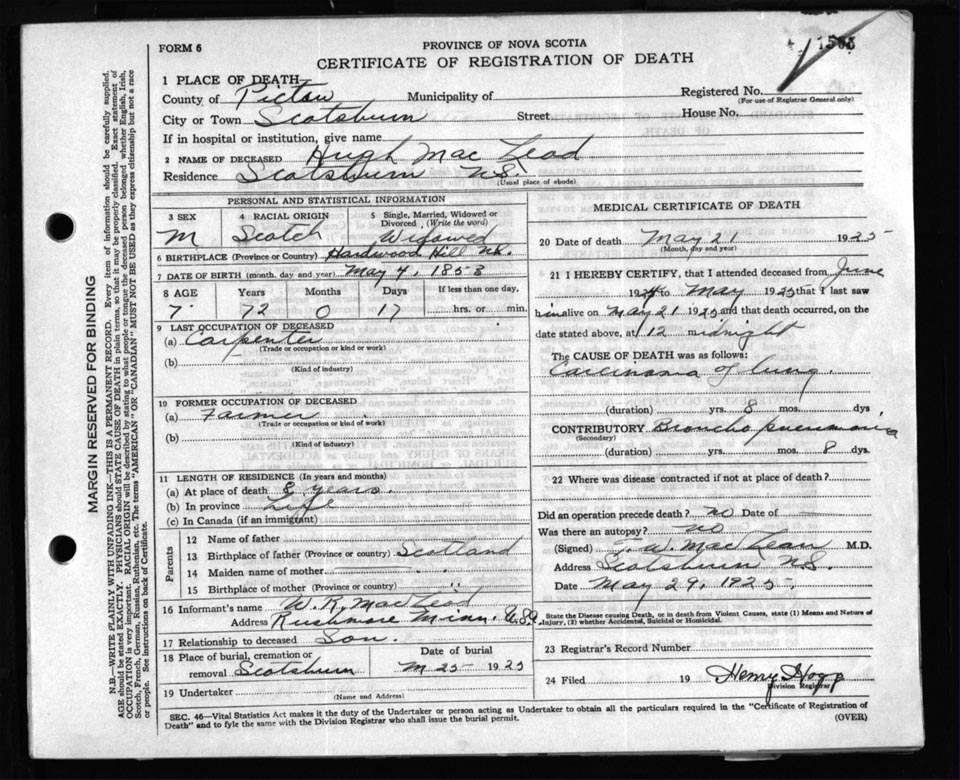 1503
FORM 6
PROVINCE OF NOVA SCOTIA
CERTIFICATE OF REGISTRATION OF DEATH
1 PLACE OF DEATH
County of Pictou Municipality of
Registered No.
(For use of Registrar General only)
City or Town Scotsburn Street House No.
If in hospital or institution, give name
2 NAME OF DECEASED Hugh Mac Leod
Residence Scotsburn N.S.
(Usual place of abode)
PERSONAL AND STATISTICAL INFORMATION
3 SEX 4 RACIAL ORIGIN 5 Single, Married, Widowed or Divorced (Write the word)
M Scotch Widowed
6 BIRTHPLACE (Province or Country) Hardwood Hill N.S.
7 DATE OF BIRTH (month, day and year) May 4, 1853
8 AGE Years Months Days If less than one day,
7 72 0 17 hrs. or min.
9 LAST OCCUPATION OF DECEASED
(a) Carpenter
(Trade or occupation or kind or work)
(b)
(Kind of industry)
10 FORMER OCCUPATION OF DECEASED
(a) Farmer
(Trade or occupation or kind of work)
(b)
(Kind of industry)
11 LENGTH OF RESIDENCE (In years and months)
(a) At place of death 8 years.
(b) In province Life
(c) In Canada (if an immigrant)
Parents
12 Name of father
13 Birthplace of father (Province or country) Scotland
14 Maiden name of mother
15 Birthplace of mother (Province or country) "
16 Informant's name W. R. MacLeod
Address Rushmore Minn. U.S.A.
17 Relationship to deceased Son.
18 Place of burial, cremation or removal Scotsburn
Date of burial
M 25 1925
19 Undertaker
(Name and Address)
MEDICAL CERTIFICATE OF DEATH
20 Date of death May 21 1925
(Month, day and year)
21 I HEREBY CERTIFY, that I attended deceased from June
1924 to May 1925 that I last saw
him alive on May 21 1925 and that death occurred, on the
date stated above, at 12 midnight
The CAUSE OF DEATH was as follows:
Carcinoma of lung.
(duration) yrs. 8 mos. dys
CONTRIBUTORY Broncho pneumonia
(Secondary)
(duration) yrs. mos. 8 dys.
22 Where was disease contracted if not at place of death?
Did an operation precede death? no Date of
Was there an autopsy? no
(Signed) T. W. MacLean M.D.
Address Scotsburn N.S.
Date May 29, 1925.
State the Disease causing Death, or in death from Violent Causes, state (1) Means and Nature of Injury, (2) whether Accidental, Suicidal or Homicidal.
23 Registrar's Record Number
24 Filed 19 Henry Hogg
Division Registrar
SEC. 46—Vital Statistics Act makes it the duty of the Undertaker or person acting as Undertaker to obtain all the particulars required in the "Certificate of Registration of
Death" and to fyle the same with the Division Registrar who shall issue the burial permit.
(OVER)
MARGIN RESERVED FOR BINDING
N.B.—WRITE PLAINLY WITH UNFADING INK—THIS IS A PERMANENT RECORD. Every item of information should be carefully supplied.
AGE should be stated EXACTLY. PHYSICIANS should STATE CAUSE OF DEATH in plain terms, so that it may be properly classified. Exact statement of
OCCUPATION is very important. RACIAL ORIGIN will be described by stating to what people or tongue the deceased person belonged whether English, Irish,
Scotch, French, German, Russian, Ruthenian, etc. The terms "AMERICAN" OR "CANADIAN" MUST NOT BE USED as they express citizenship but not a race
or people. See instructions on back of Certificate.